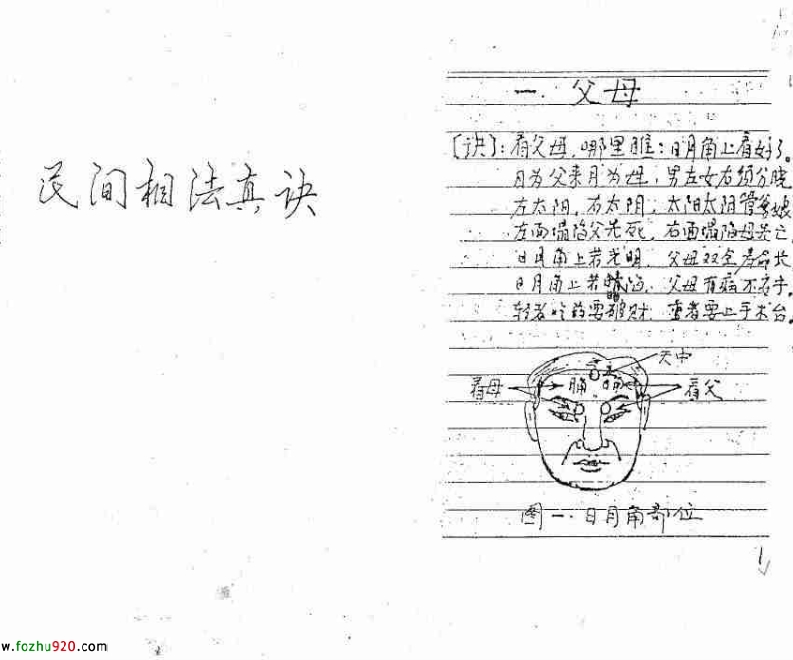 民间相法真诀
一. 父母
[诀]：看父母，哪里瞧：日月角上看好了。
日为父来月为母，男左女右须分晓
左太阳，右太阴，太阳太阴管爹娘
左面塌陷父先死，右面塌陷母先亡
日月角上若光明，父母双全寿命长
日月角上若暗，父母有病不
轻者吃药要破财，重者要上手术台。
天中
看母
看父
图一. 日月角部位
1
w.fozhu920.com